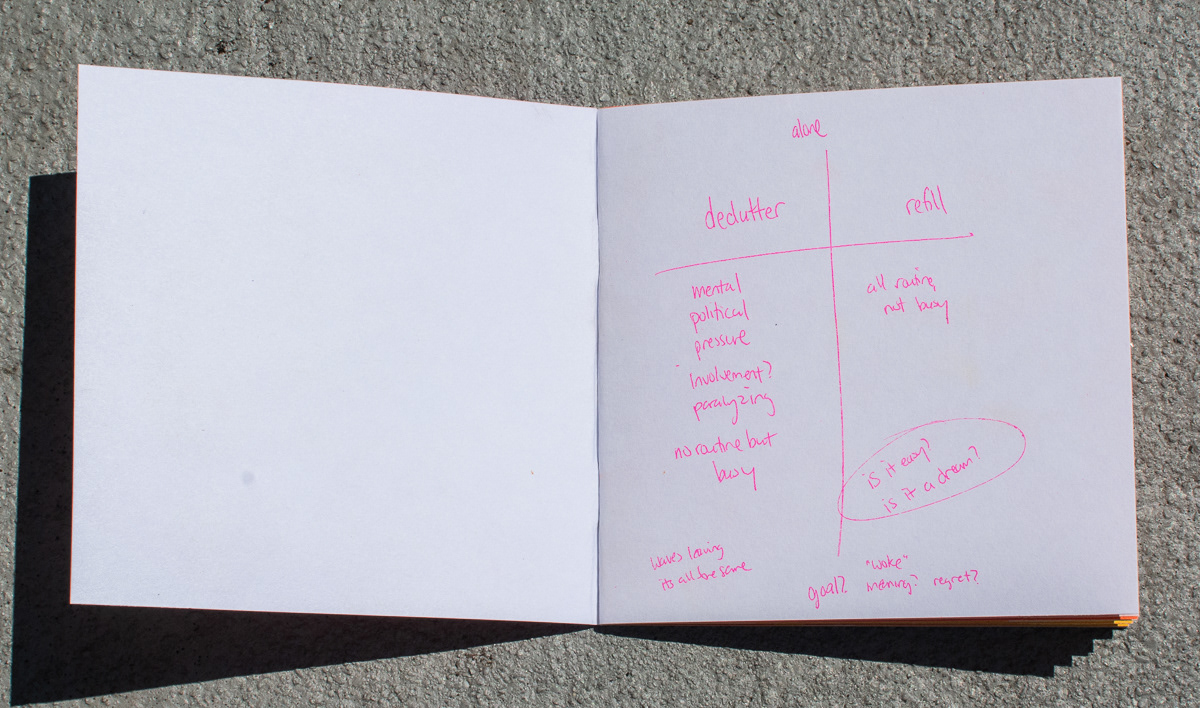 alone
declutter
refill
mental
political
pressure
involvement?
paralyzing
no routine but
busy
all routine
not busy
is it easy?
is it a dream?
waves leaving
its all the same
goal?
"woke"
meaning? regret?